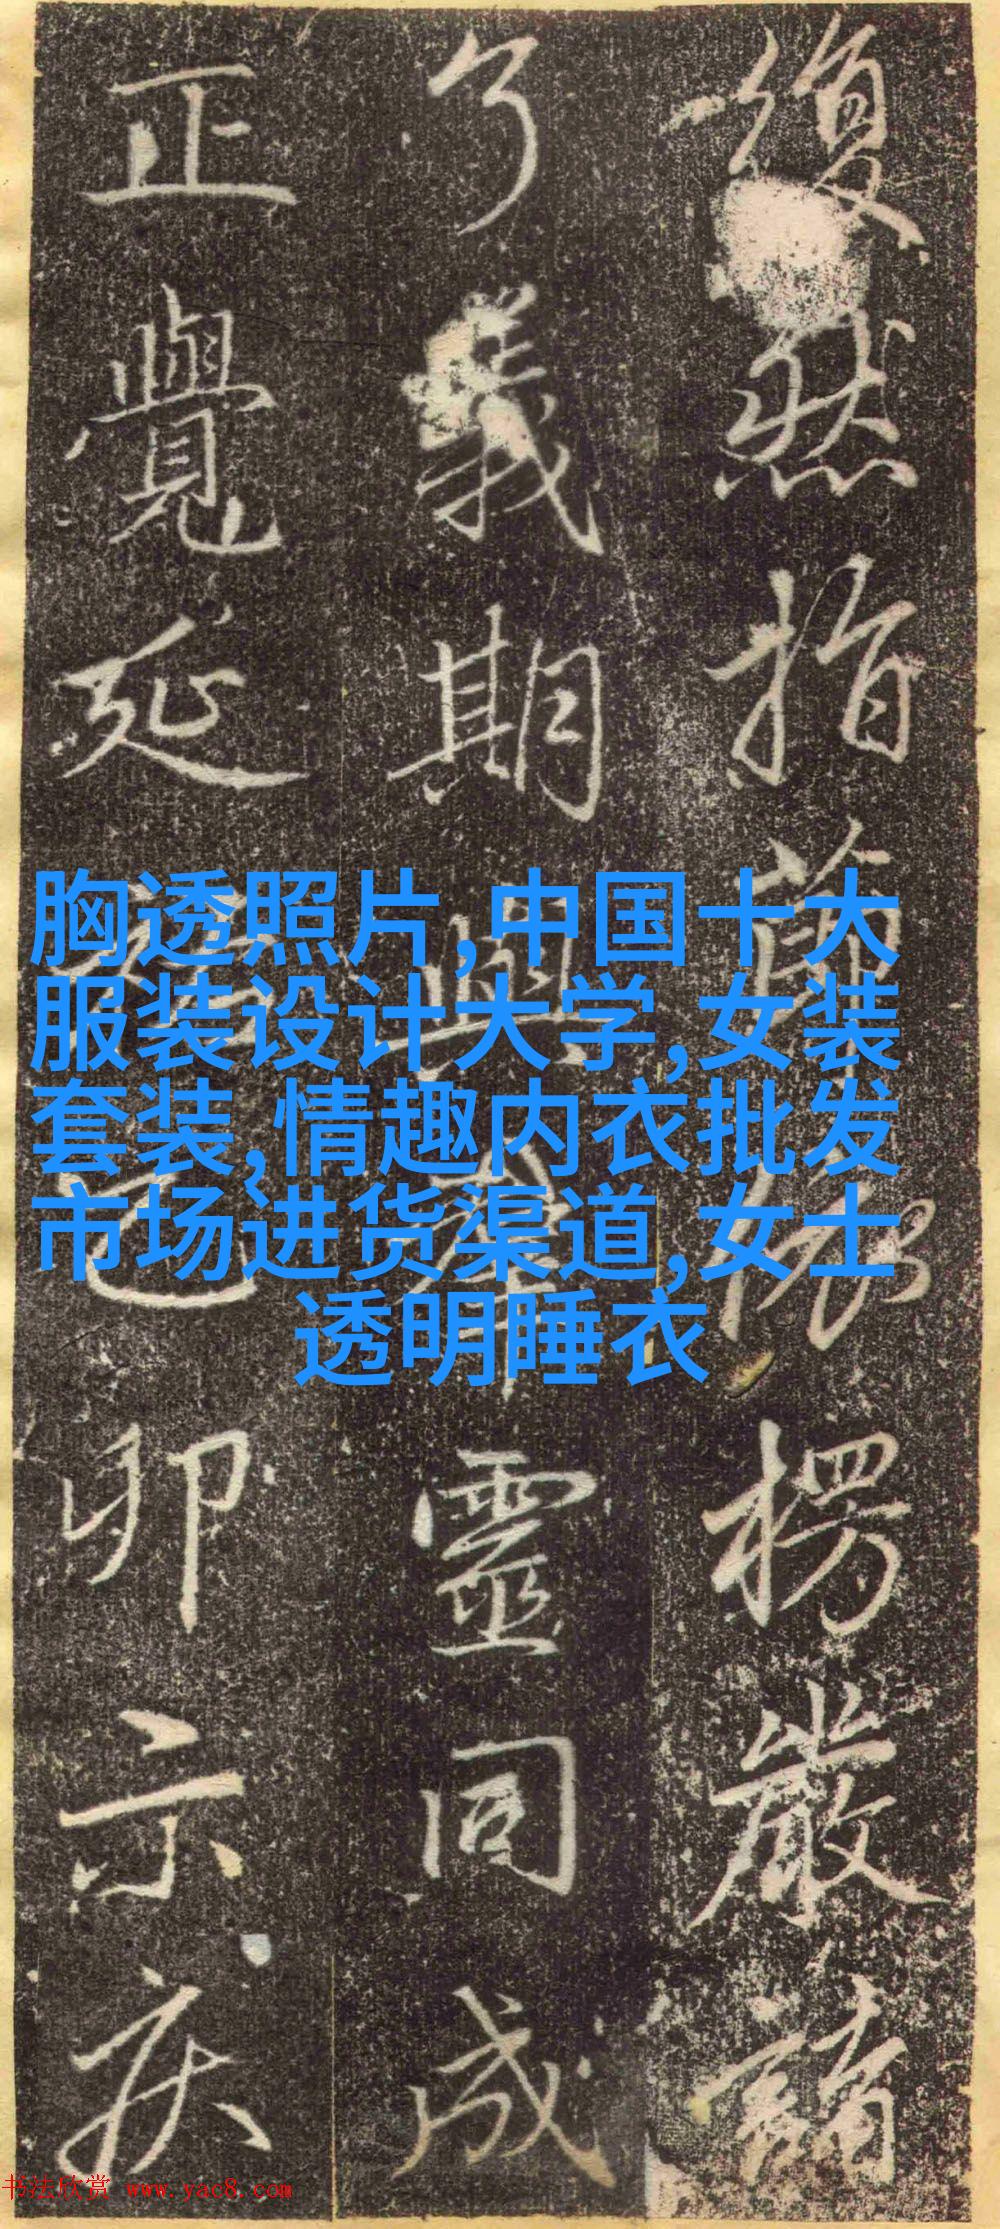 胸透照片,中国十大
服装设计大学,女装
套装,情趣内衣批发
市场进货渠道,女士
透明睡衣
復然指依楞嚴
了義期與靈同成
正覺延卯示疾
书法欣赏 www.yac8.com